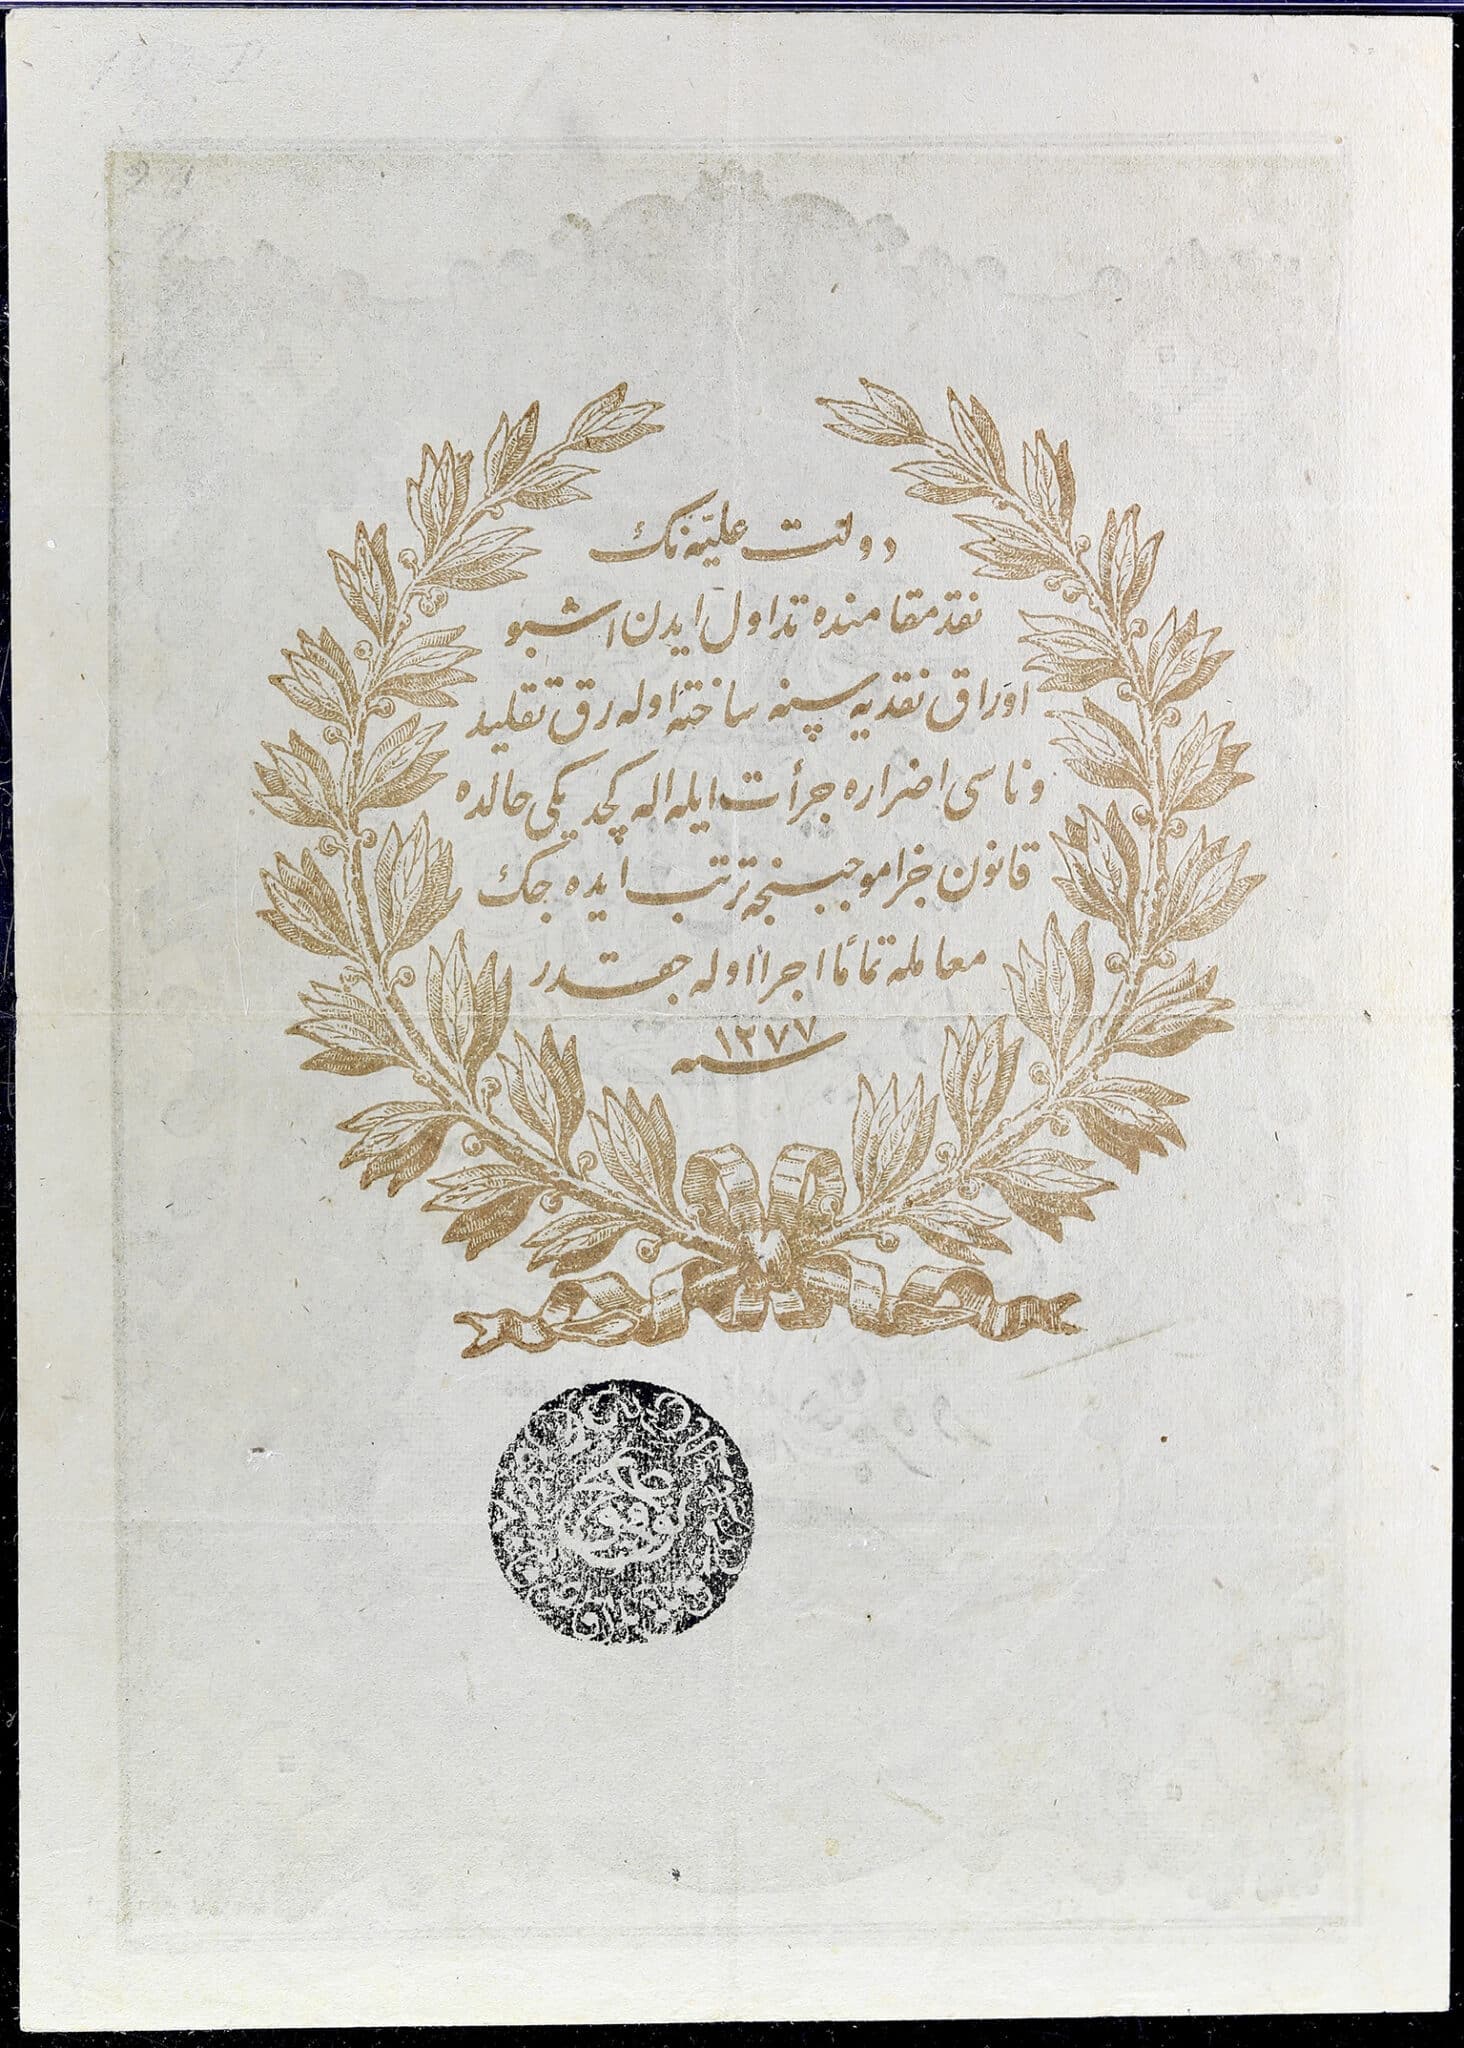 دولت عليّه نك
نقد مقامنده تداول ايدن اشبو
اوراق نقديه سنه ساخته اوله رق تقليد
وناسى اضراره جرأت ايله
حالده
قانون جزا موجبنجه ترتب ايده جك
معامله تمامًا اجرا اوله جقدر
سنه ١٢٧٧